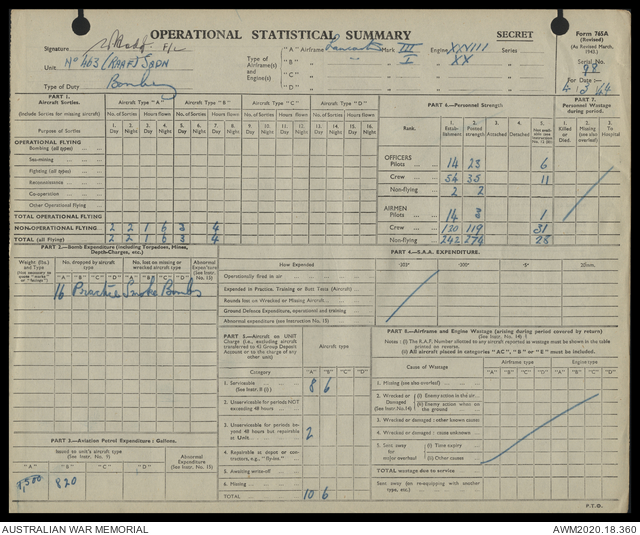 OPERATIONAL STATISTICAL SUMMARY
SECRET
Form 765A
(Revised)
(As Revised March, 1943.)
Serial No. 98
For Date :—
4/3/44
Signature F/L
Unit. No 463 (RAAF) SQDN
Type of Duty Bomber
Type of Airframe(s) and Engine(s)
"A" Airframe Lancaster Mark III Engine XXVIII Series
"B" " " I XX
"C"
"D"
PART 1.
Aircraft Sorties.
(Include Sorties for missing aircraft)
Purpose of Sorties
Aircraft Type "A" Aircraft Type "B" Aircraft Type "C" Aircraft Type "D"
No. of Sorties Hours flown No. of Sorties Hours flown No. of Sorties Hours flown No. of Sorties Hours flown
1. Day 2. Night 3. Day 4. Night 5. Day 6. Night 7. Day 8. Night 9. Day 10. Night 11. Day 12. Night 13. Day 14. Night 15. Day 16. Night
OPERATIONAL FLYING
Bombing (all types)
Sea-mining
Fighting (all types)
Reconnaissance
Co-operation
Other Operational flying
TOTAL OPERATIONAL FLYING
NON-OPERATIONAL FLYING 2 2 1 6 3 4
TOTAL (all Flying) 2 2 1 6 3 4
PART 6.—Personnel Strength
Rank.
1. Establishment
2. Posted strength
3. Attached
4. Detached
OFFICERS
Pilots 14 23 6
Crew 54 35 11
Non-flying 2 2
AIRMEN
Pilots 14 3 1
Crew 120 119 31
Non-flying 242 274 28
PART 7.
Personnel Wastage during period.
1. Killed or Died.
2. Missing (see also overleaf)
3. To Hospital
PART 2.—Bomb Expenditure (including Torpedoes, Mines, Depth-Charges, etc.)
Weight (lbs.) and Type
No. dropped by aircraft type
No. lost on missing or wrecked aircraft type
Abnormal Expenditure (See Instr. 15)
"A" "B" "C" "D" "A" "B" "C" "D"
16 Practice Smoke Bombs
PART 4.—S.A.A. EXPENDITURE.
How Expended
·303" 20mm.
Operationally fired in air
Expended in Practice, Training or Butt Tests (Aircraft)
Rounds lost on Wrecked or Missing Aircraft
Ground Defence Expenditure, operational and training
Abnormal expenditure (see Instruction No. 15)
PART 5.—Aircraft on UNIT Charge (i.e., excluding aircraft transferred to 43 Group Deposit Account or to the charge of any other unit)
Category
Aircraft type
"A" "B" "C" "D"
1. Serviceable (See Instr. 8 (i) ) 8 6
2. Unserviceable for periods NOT exceeding 48 hours
3. Unserviceable for periods beyond 48 hours but repairable at Unit 2
4. Repairable at depot or contractors, e.g., "fly-ins."
5. Awaiting write-off
6. Missing
TOTAL 10 6
PART 8.—Airframe and Engine Wastage (arising during period covered by return)
(See Instr. No. 14) †
Notes : (i) The R.A.F. Number allotted to any aircraft reported as wastage must be shown in the table printed on reverse.
(ii) All aircraft placed in categories "AC", "B" or "E" must be included.
Cause of Wastage
Airframe type Engine type
"A" "B" "C" "D" "A" "B" "C" "D"
1. Missing (see also overleaf)
2. Wrecked or Damaged (See Instr. No.14)
(i) Enemy action in the air
(ii) Enemy action on the ground
3. Wrecked or damaged : other known causes
4. Wrecked or damaged : cause unknown
5. Sent away for major overhaul
(i) Time expiry
(ii) Other causes
TOTAL wastage due to service
Sent away (on re-equipping with another type, etc.)
PART 3.—Aviation Petrol Expenditure : Gallons.
Issued to unit's aircraft type (See Instr. No. 9)
Abnormal Expenditure (See Instr. No. 15)
"A" "B" "C" "D"
820
P.T.O.
AUSTRALIAN WAR MEMORIAL
AWM2020.18.360